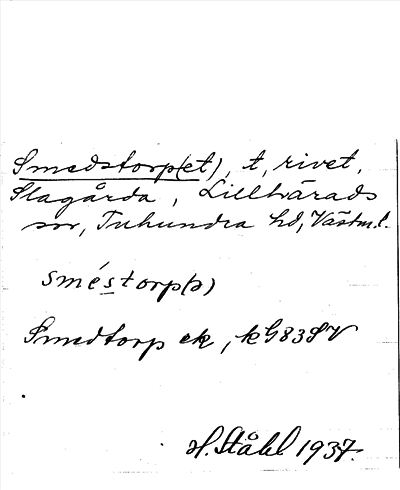 Smedstorp(et), t, rivet,
Slagårda, Lillhärads
sn, Tuhundra hd, Västm.l.
sméstorp(ə)
Smedtorp ek, kG83SV
H. Ståhl 1937.